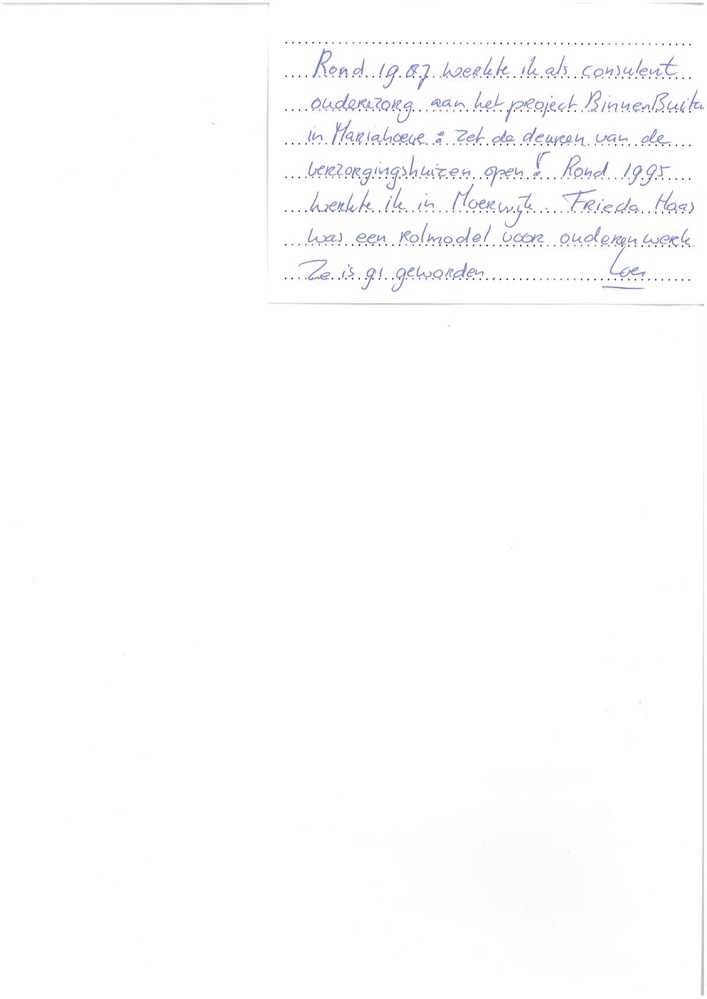 Rond 1987 werkte ik als consulent
ouderenzorg aan het project BinnenBuiten
in Mariahoeve : zet de deuren van de
verzorgingshuizen open! Rond 1995
werkte ik in Moerwijk. Frieda Haas
was een rolmodel voor ouderenwerk
Ze is 91 geworden